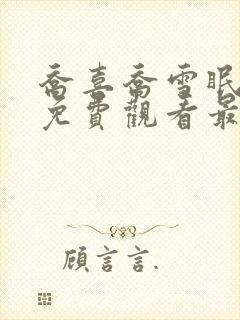 喬喜喬雪眠
免費觀看最
顧言言.